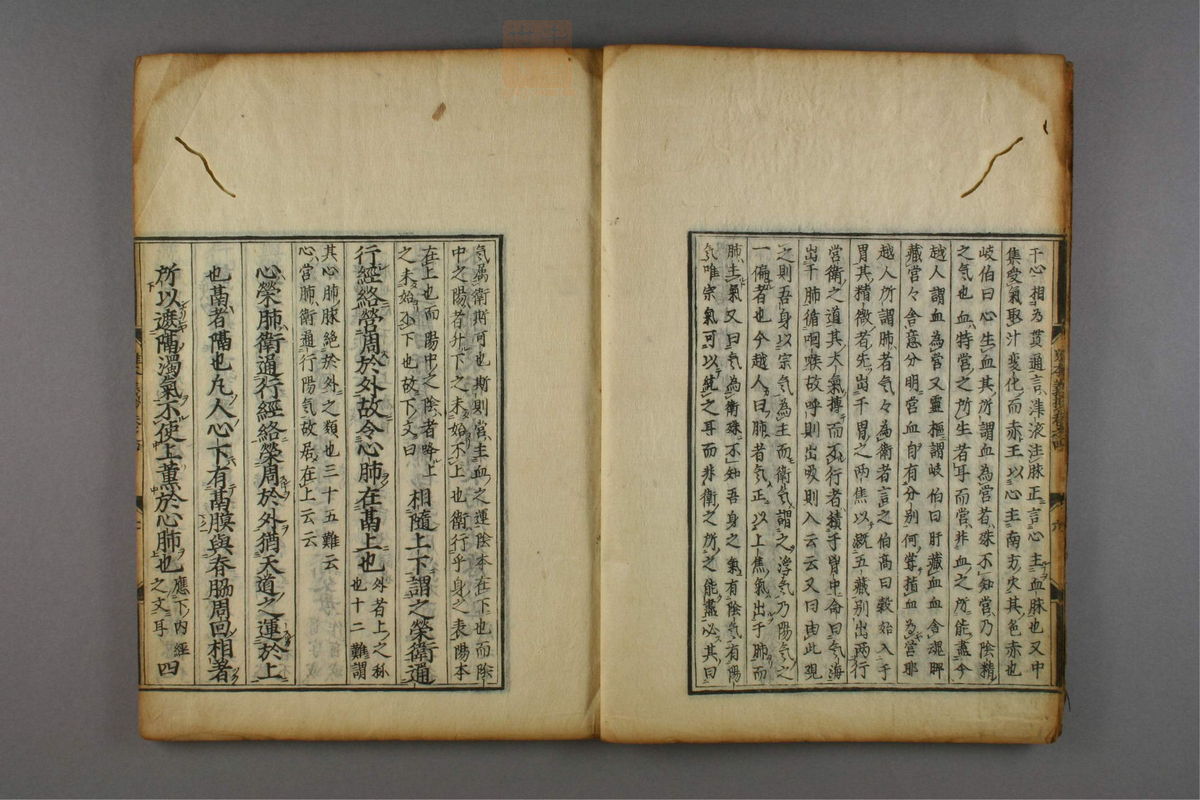 于心相為貫通言津液注脉正言心主血脉也又中
集受氣取汁変化而赤王以心主南方火其色赤也
岐伯曰心生血其所謂血為営者殊不知営乃陰精
之気也血特営之所生者耳而営非血之所能盡今
越人謂血為営又靈樞謂岐伯曰肝藏血血舍魂脾
藏営々舍意分明営血自有分別何嘗指血為営耶
越人所謂肺者気々為衛者言之伯高曰穀始入于
胃其精微者先出于胃之両焦以漑五藏別出両行
営衛之道其大氣摶而不行者積于胷中命曰気海
出于肺循咽喉故呼則出吸則入云云又曰由此覌
之則吾身以宗気為主而衛気謂之浮気乃陽気之
一偏者也今越人曰肺者気正以上焦氣出于肺而
肺主氣又曰気為衛殊不知吾身之氣有陰気有陽
気唯宗氣可以統之耳而非衛之所之能盡必其曰
気為衛斯可也斯則営主血之運陰本在下也而陰
中之陽者升下之未始不上也衛行乎身之表陽本
在上也而陽中之陰者降上
之未始不下也故下文曰
相隨上下謂之榮衛通
行經絡營周於外故令心肺在鬲上也
外者上之称
也十二難謂
其心肺脉絶於外之類也三十五難云
心営肺衛通行陽気故居在上云云
心榮肺衛通行經絡榮周於外猶天道之運於上
也鬲者隔也凢人心下有鬲膜與脊脇周回相著
所以遮隔濁氣不使上薫於心肺也
應下内經
之文耳
四